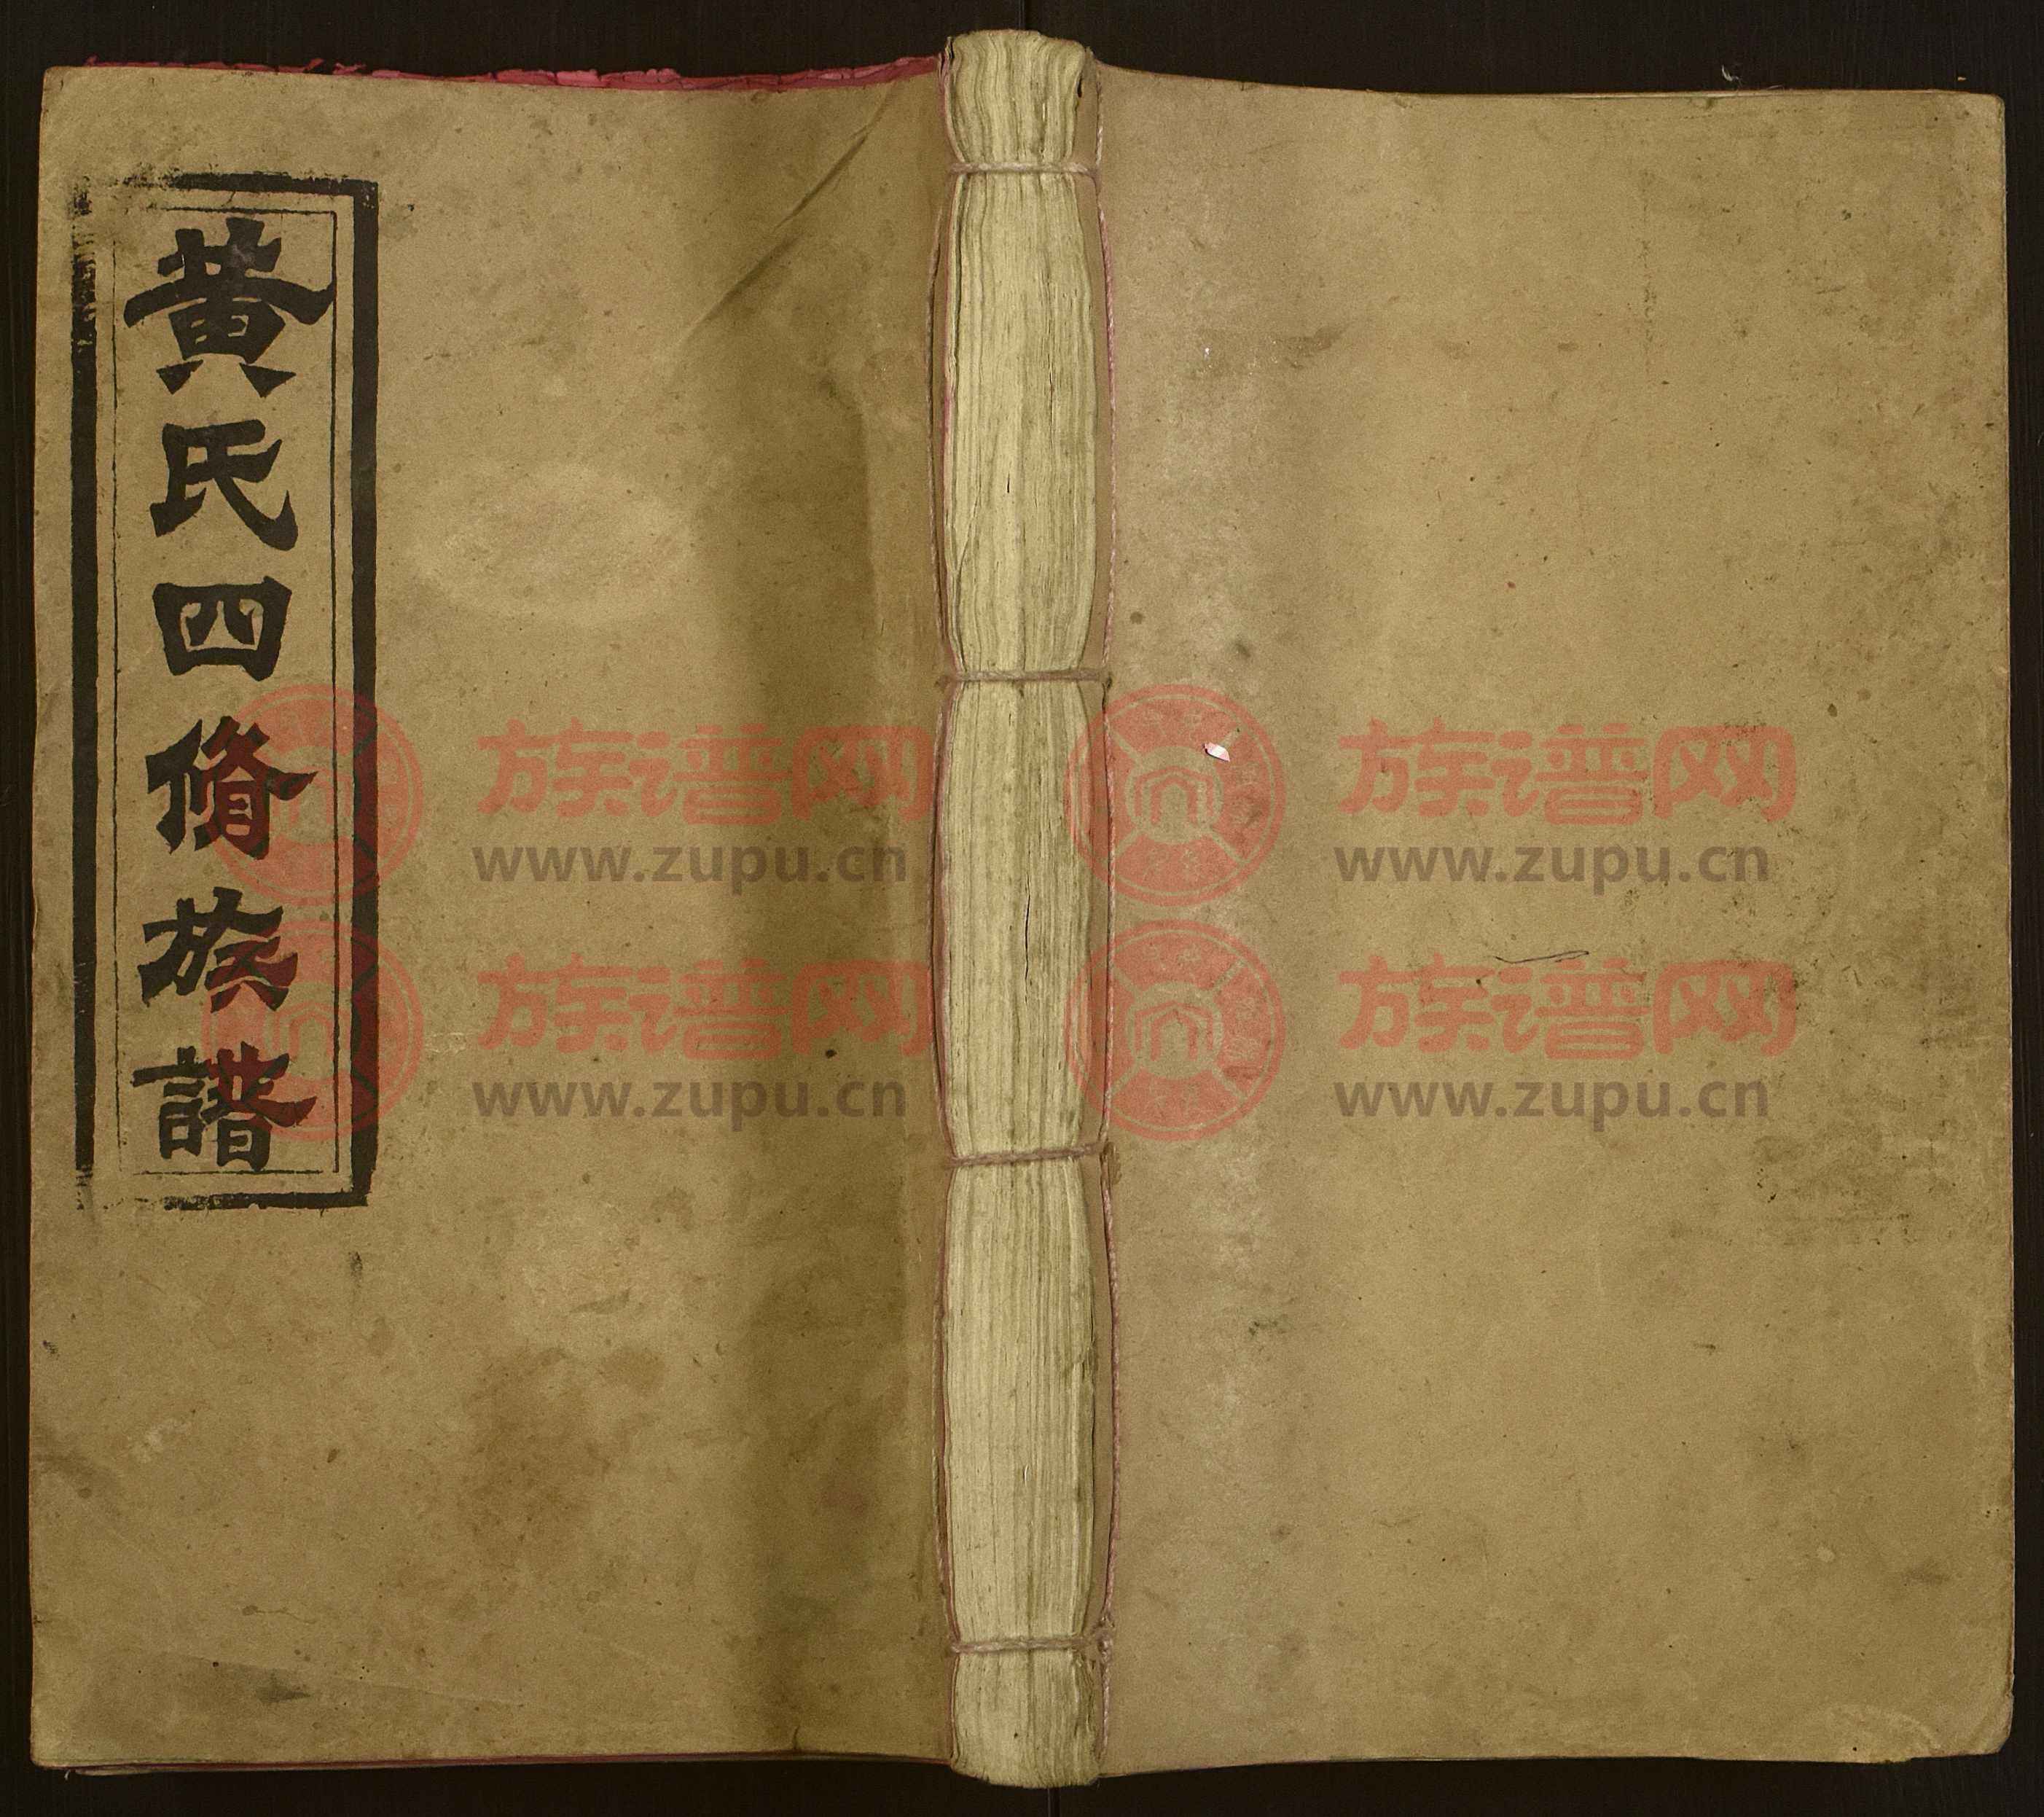 黄氏四脩族譜
族谱网
www.zupu.cn
族谱网
www.zupu.cn
族谱网
www.zupu.cn
族谱网
www.zupu.cn